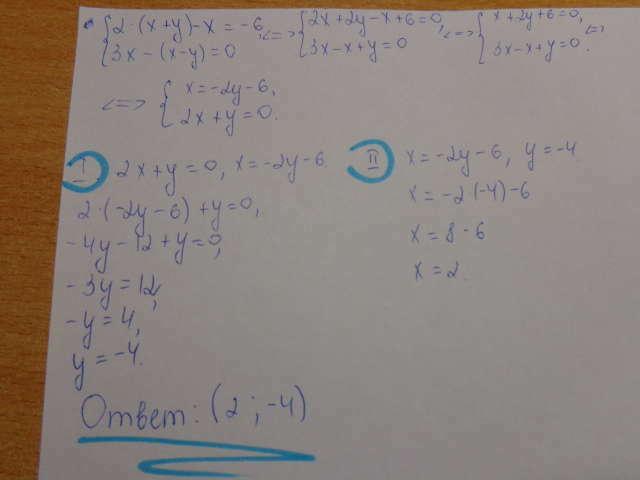 { 2·(x+y)-x=-6, <=> { 2x+2y-x+6=0, <=> { x+2y+6=0, <=>
3x-(x-y)=0 3x-x+y=0 3x-x+y=0.
<=> { x=-2y-6,
2x+y=0.
I 2x+y=0, x=-2y-6.
2·(-2y-6)+y=0,
-4y-12+y=0,
-3y=12,
-y=4,
y=-4.
II x=-2y-6, y=-4
x=-2(-4)-6
x=8-6
x=2.
Ответ: (2;-4)